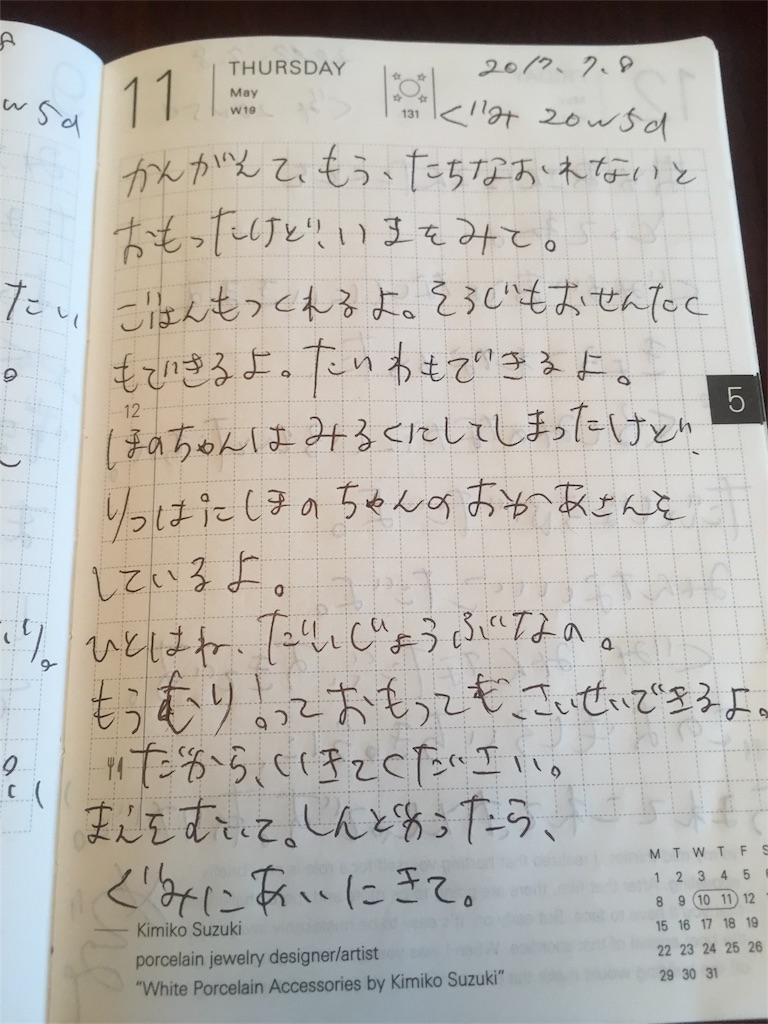 11 THURSDAY
May
W19
131
2017.7.8
ぐみ 20w5d
かんがえて、もう、たちなおれないと
おもったけど、いまをみて。
ごはんもつくれるよ。そうじもおせんたく
もできるよ。たいわもできるよ。
12
しほのちゃんはみるくにしてしまったけど、
りっぱにしほのちゃんのおかあさんを
しているよ。
ひとはね、だいじょうぶなの。
もうむり!っておもっても、さいせいできるよ。
だから、いきてください。
まえをむいて。しんどかったら、
ぐみにあいにきて。
5
Kimiko Suzuki
porcelain jewelry designer/artist
"White Porcelain Accessories by Kimiko Suzuki"
M T W T F S
1 2 3 4 5
8 9 10 11 12
15 16 17 18 19
22 23 24 25 26
29 30 31